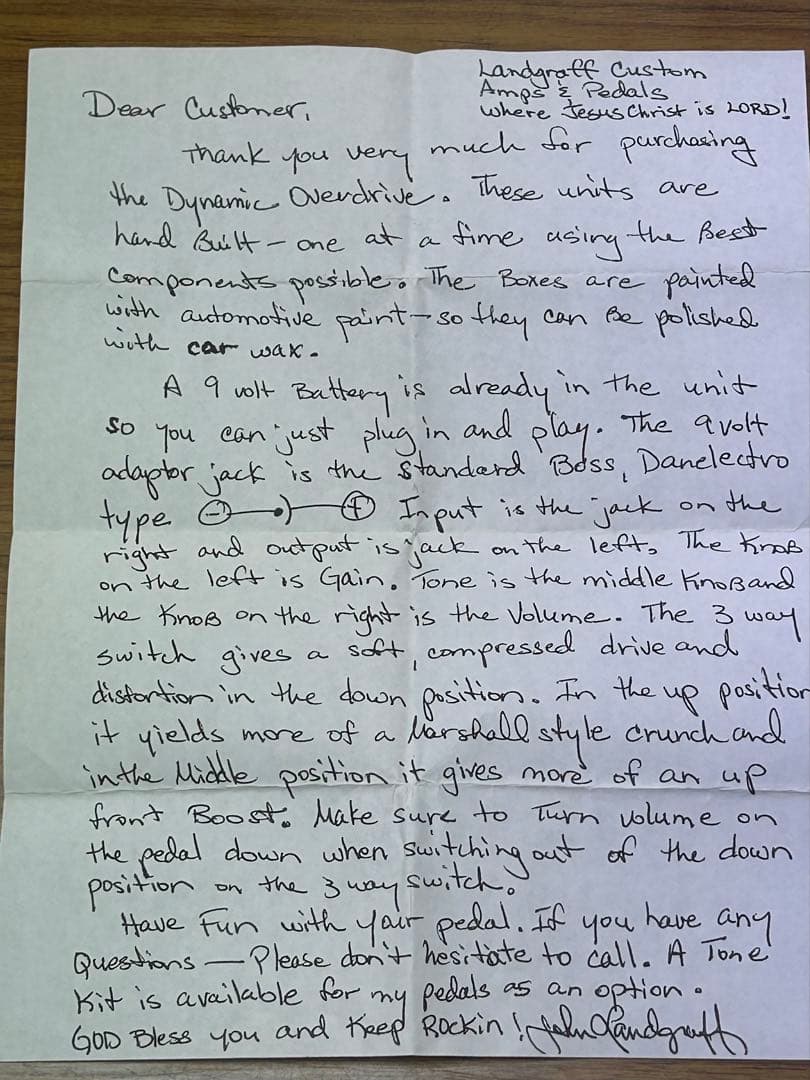 Landgraff Custom
Amps & Pedals
where Jesus Christ is LORD!
Dear Customer,
Thank you very much for purchasing
the Dynamic Overdrive. These units are
hand Built – one at a time using the Best
components possible. The Boxes are painted
with automotive paint – so they can Be polished
with car wax.
A 9 volt Battery is already in the unit
so you can just plug in and play. The 9 volt
adaptor jack is the standard Boss, Danelectro
type (-)—•)—(+) Input is the jack on the
right and output is jack on the left. The Knob
on the left is Gain. Tone is the middle Knob and
the Knob on the right is the Volume. The 3 way
switch gives a soft, compressed drive and
distortion in the down position. In the up position
it yields more of a Marshall style crunch and
in the Middle position it gives more of an up
front Boost. Make sure to Turn volume on
the pedal down when switching out of the down
position on the 3 way switch.
Have Fun with your pedal. If you have any
Questions — Please don't hesitate to call. A Tone
Kit is available for my pedals as an option.
GOD Bless you and Keep Rockin! John Landgraff